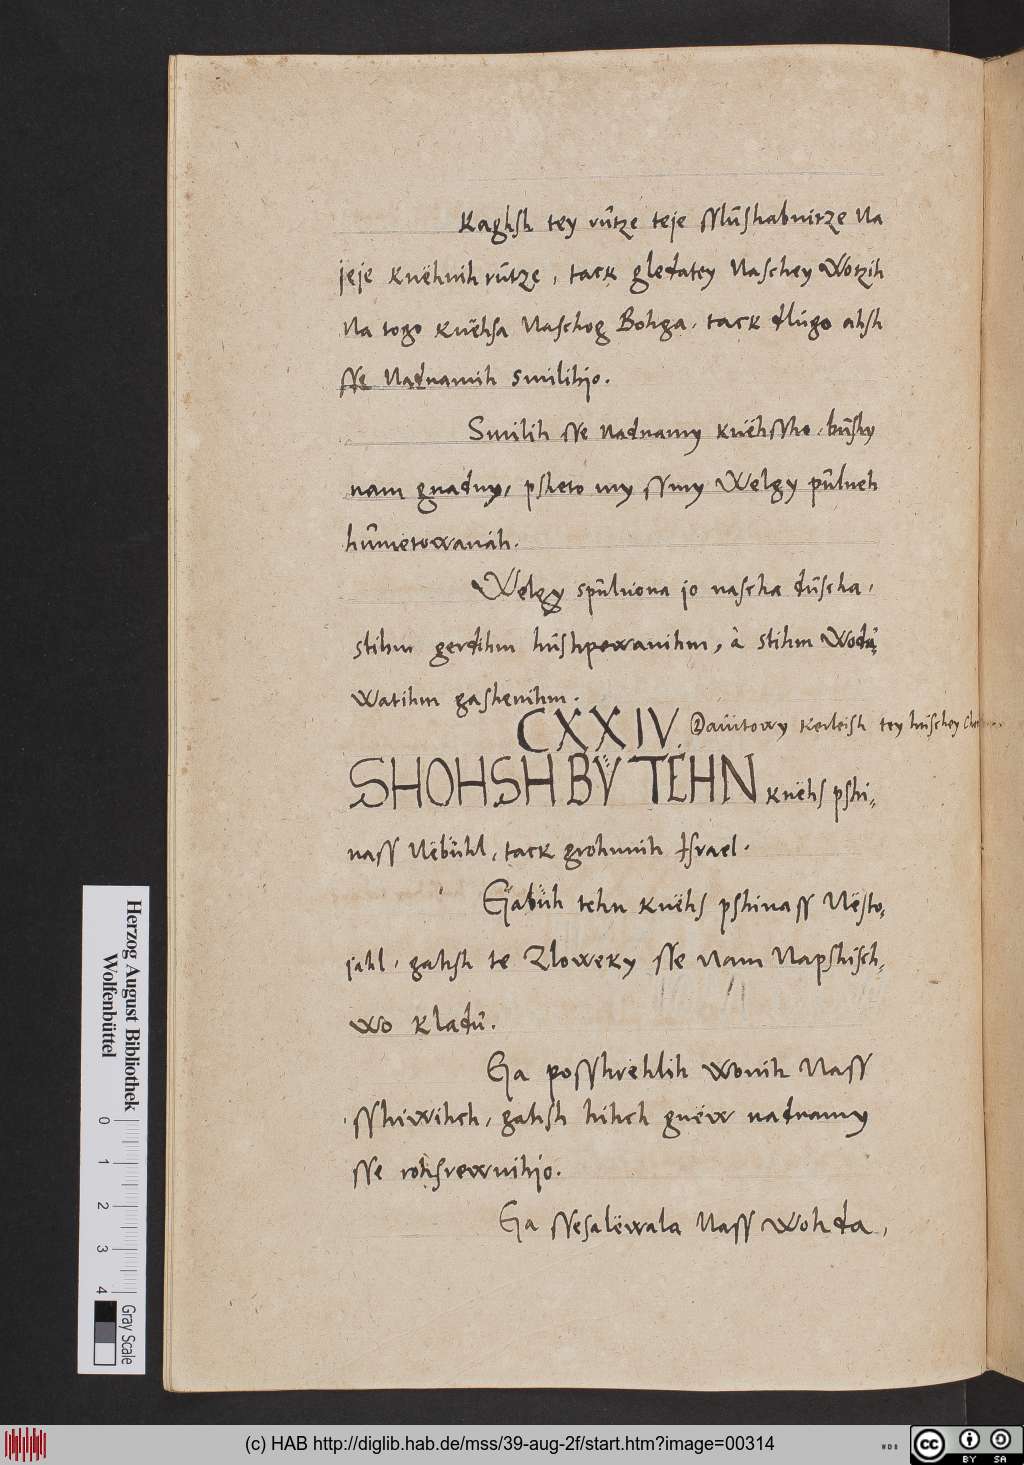 Kaghsh tey rûtze teje sslûshabnitze Na
jeje knëhnih rûtze, tack gledatey Naschey Wotzih
Na togo knëhsa Naschog Bohga, tack dlúgo ahsh
sse Nadnamih smilihjo.
Smilih sse nadnamy knëhssho, bûshy
nam gnadny, psheto my ssmy Welgy pûlneh
hûmetowanáh.
Welgy spûlniona jo nascha dûscha,
stihm gerdihm hûshpowanihm, à stihm Wodû,
watihm gashenihm.
CXXIV. Dawitowy Kerleish tey huschey
SHOHSH BŸ TËHN knëhs pshi,
nass Nëbühl, tack grohnnih Israel.
Gabüh tehn knëhs pshinass Nësto,
jahl, gahsh te Zloweky sse Nam Napshisch,
wo kladû.
Ga posshrehlih wonih Nass
sshiwihch, gahsh hihch gnëw nadnamy
sse rohsrewnihjo.
Ga ssesalëwala Nass wohda,
Herzog August Bibliothek
Wolfenbüttel
0 1 2 3 4
Gray Scale
(c) HAB http://diglib.hab.de/mss/39-aug-2f/start.htm?image=00314
WDB
cc BY SA